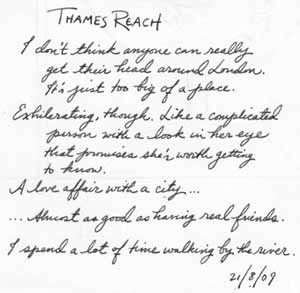 THAMES REACH
I don't think anyone can really
get their head around London.
It's just too big of a place.
Exhilerating, though. Like a complicated
person with a look in her eye
that promises she's worth getting
to know.
A love affair with a city...
...Almost as good as having real friends.
I spend a lot of time walking by the river.
21/8/09